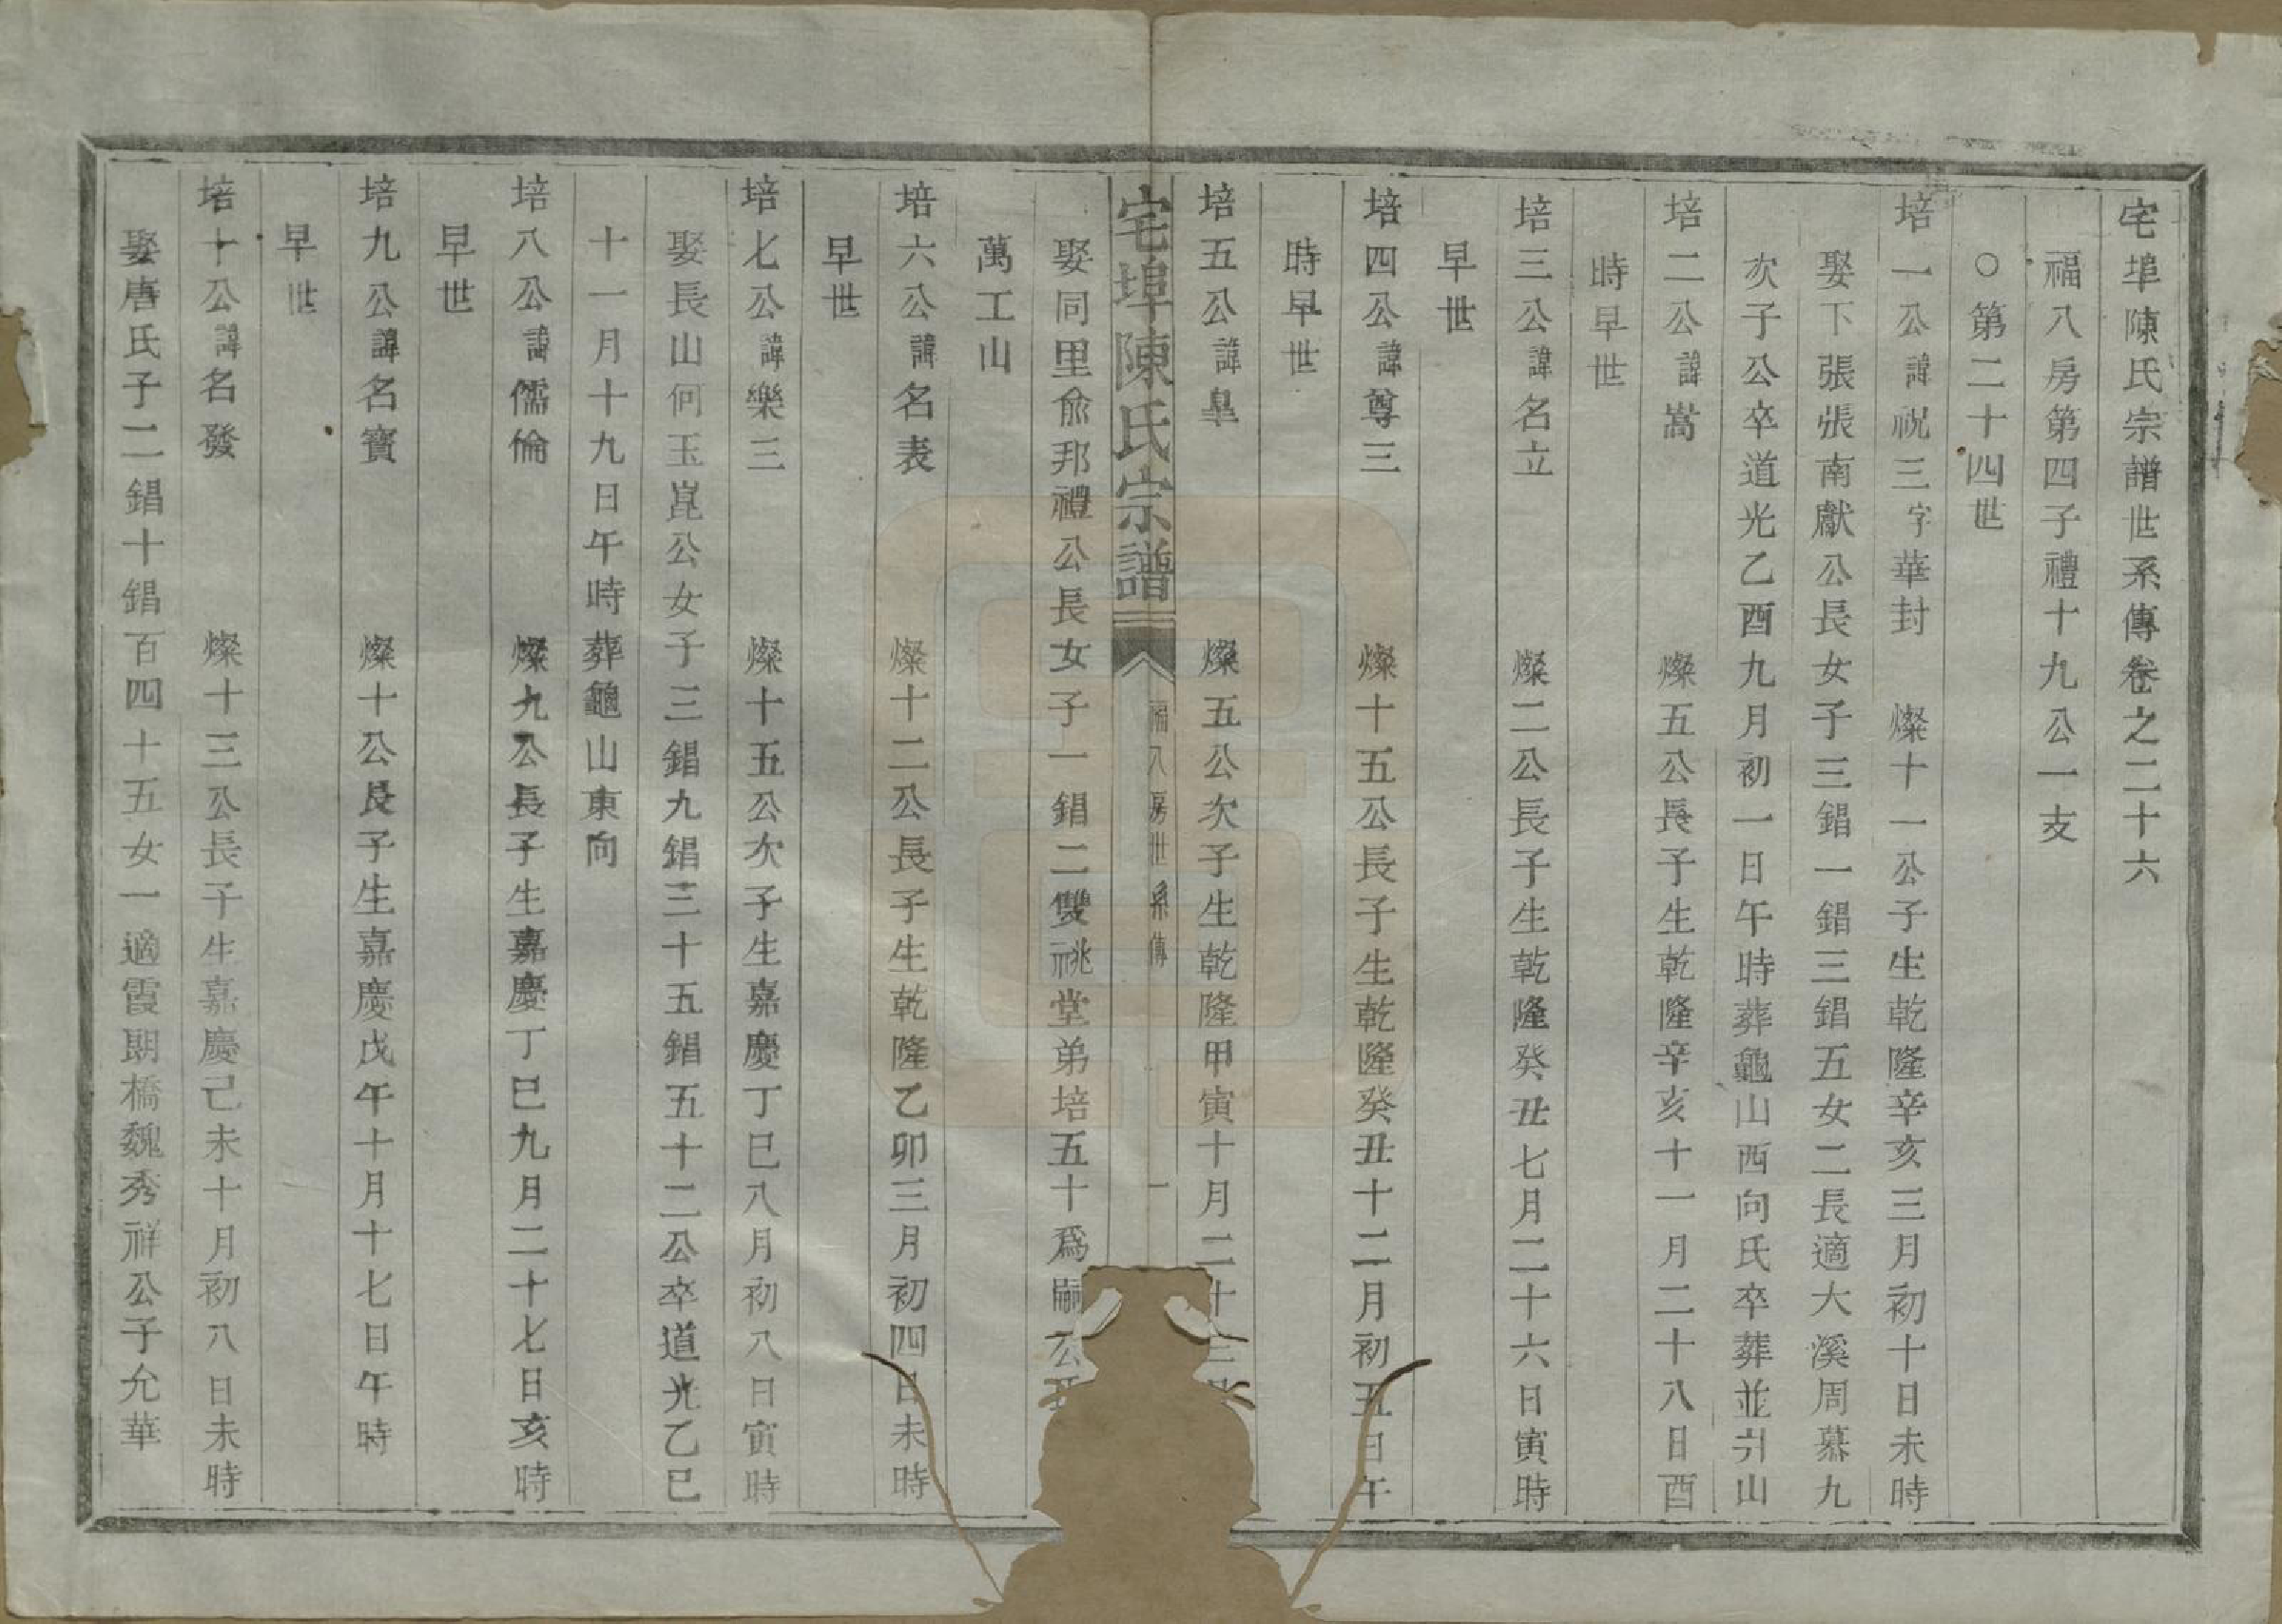 宅埠陳氏宗譜世系傳卷之二十六
福八房第四子禮十九公一支
○第二十四世
培一公諱祝三字華封 燦十一公子生乾隆辛亥三月初十日未時
娶下張張南獻公長女子三錩一錩三錩五女二長適大溪周慕九
次子公卒道光乙酉九月初一日午時葬龜山西向氏卒葬並引山
培二公諱嵩 燦五公長子生乾隆辛亥十一月二十八日酉
時早世
培三公諱名立 燦二公長子生乾隆癸丑七月二十六日寅時
早世
培四公諱尊三 燦十五公長子生乾隆癸丑十二月初五日午
時早世
培五公諱皐 燦五公次子生乾隆甲寅十月二十三
宅埠陳氏宗譜 福八房世系傳 一
娶同里俞邦禮公長女子一錩二雙祧堂弟培五十為嗣公
萬工山
培六公諱名表 燦十二公長子生乾隆乙卯三月初四日未時
早世
培七公諱樂三 燦十五公次子生嘉慶丁巳八月初八日寅時
娶長山何玉崑公女子三錩九錩三十五錩五十二公卒道光乙巳
十一月十九日午時葬龜山東向
培八公諱儒倫 燦九公長子生嘉慶丁巳九月二十七日亥時
早世
培九公諱名寳 燦十公長子生嘉慶戊午十月十七日午時
早世
培十公諱名發 燦十三公長子生嘉慶己未十月初八日未時
娶唐氏子二錩十錩百四十五女一適霞期橋魏秀祥公子允華